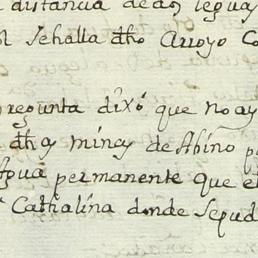 distancia de dos leguas
sehalla dho Arroyo Co
regunta dixó que no ay
dha miney de Abino
Agua permanente que e
Cathalina donde sepud